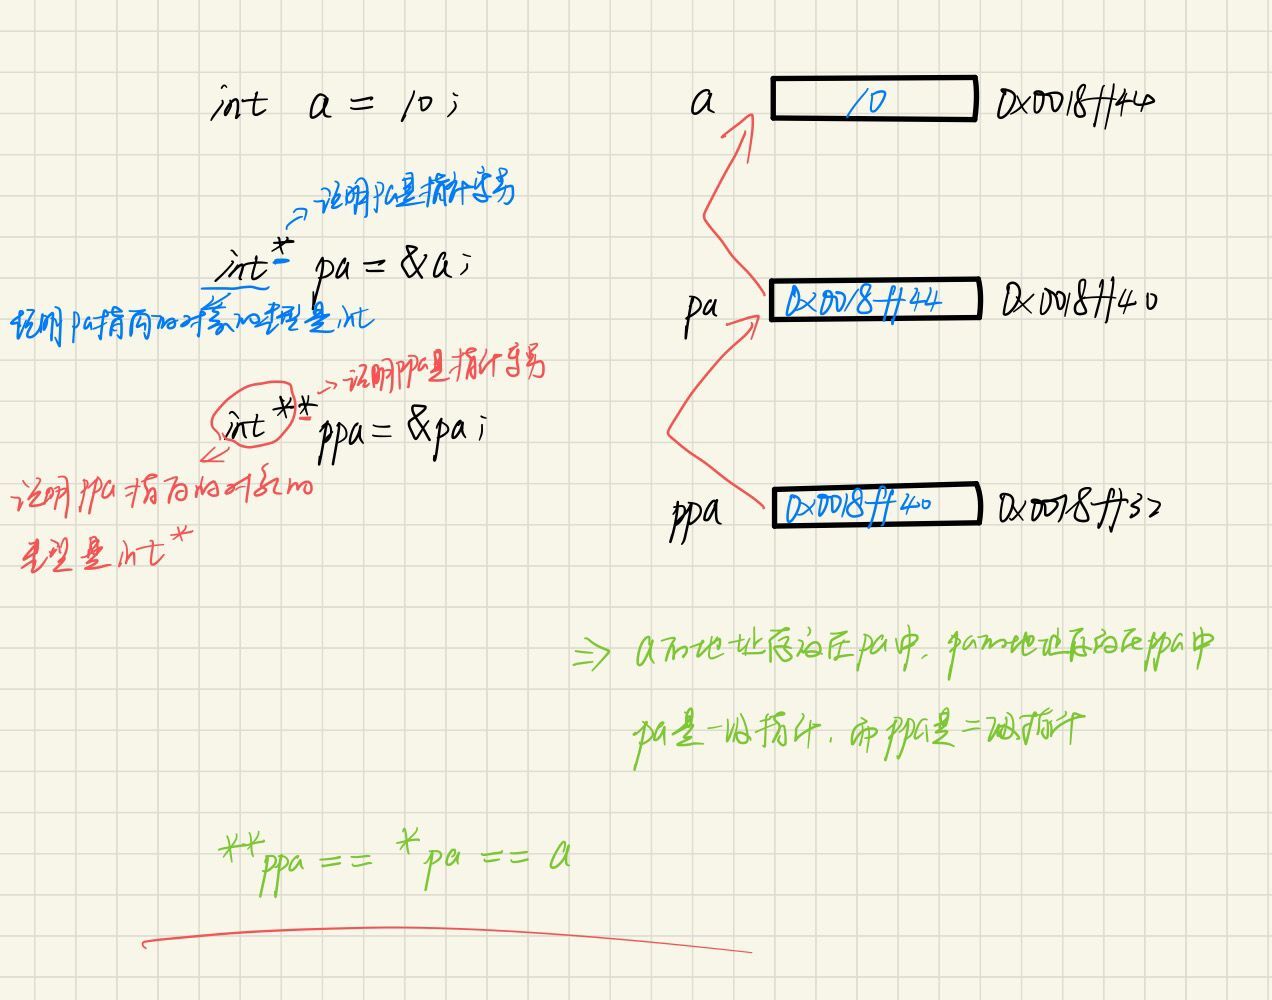 int a = 10;
a 10 0x0018ff44
说明pa是指针变量
int* pa = &a;
说明pa指向的对象的类型是int
pa 0x0018ff44 0x0018ff40
说明ppa是指针变量
int** ppa = &pa;
说明ppa指向的对象的
类型是int*
ppa 0x0018ff40 0x0018ff32
⇒ a的地址存放在pa中, pa的地址存放在ppa中
pa是一级指针, 而ppa是二级指针
**ppa == *pa == a